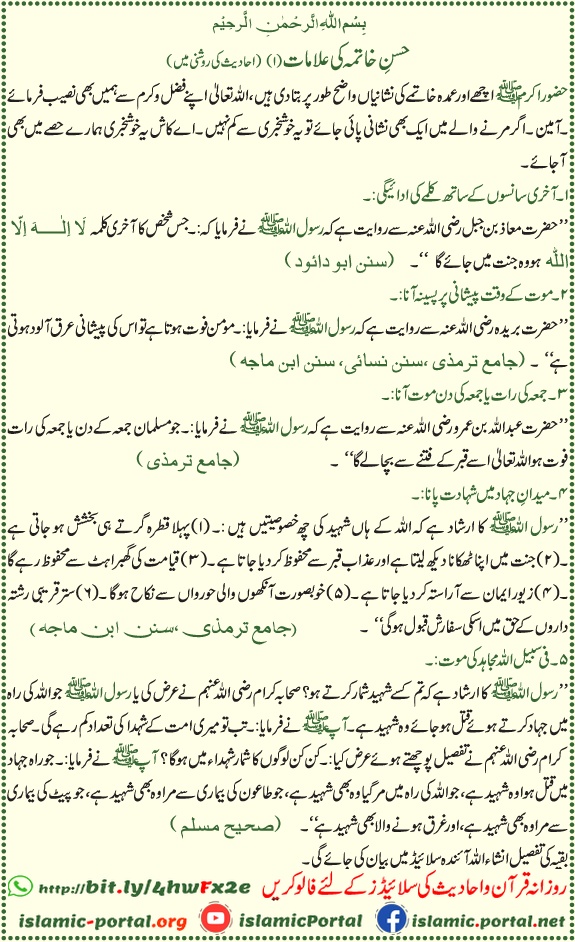 بِسْمِ اللّٰهِ الرَّحْمٰنِ الرَّحِيْمِ
حسنِ خاتمہ کی علامات (۱) (احادیث کی روشنی میں)
حضور اکرم ﷺ اچھے اور عمدہ خاتمے کی نشانیاں واضح طور پر بتا دی ہیں، اللہ تعالیٰ اپنے فضل و کرم سے ہمیں بھی نصیب فرمائے
۔ آمین۔ اگر مرنے والے میں ایک بھی نشانی پائی جائے تو یہ خوشخبری سے کم نہیں۔ اے کاش یہ خوشخبری ہمارے حصے میں بھی
آ جائے۔
۱۔ آخری سانسوں کے ساتھ کلمے کی ادائیگی:۔
’’حضرت معاذ بن جبل رضی اللہ عنہ سے روایت ہے کہ رسول اللہ ﷺ نے فرمایا کہ:۔ جس شخص کا آخری کلمہ لَا اِلٰـــهَ اِلَّا
اللّٰه ہو وہ جنت میں جائے گا‘‘۔ (سنن ابو دائود)
۲۔ موت کے وقت پیشانی پر پسینہ آنا:۔
’’حضرت بریدہ رضی اللہ عنہ سے روایت ہے کہ رسول اللہ ﷺ نے فرمایا:۔ مؤمن فوت ہوتا ہے تو اس کی پیشانی عرق آلود ہوتی
ہے‘‘۔ (جامع ترمذی ،سنن نسائی، سنن ابن ماجه)
۳۔ جمعہ کی رات یا جمعہ کی دن موت آنا:۔
’’حضرت عبداللہ بن عمرو رضی اللہ عنہ سے روایت ہے کہ رسول اللہ ﷺ نے فرمایا:۔ جو مسلمان جمعہ کے دن یا جمعہ کی رات
فوت ہو اللہ تعالیٰ اسے قبر کے فتنے سے بچا لے گا‘‘۔ (جامع ترمذی)
۴۔ میدانِ جہاد میں شہادت پانا:۔
’’رسول اللہ ﷺ کا ارشاد ہے کہ اللہ کے ہاں شہید کی چھ خصوصیتیں ہیں:۔ (۱) پہلا قطرہ گرتے ہی بخشش ہو جاتی ہے
۔ (۲) جنت میں اپنا ٹھکانا دیکھ لیتا ہے اور عذابِ قبر سے محفوظ کر دیا جاتا ہے۔ (۳) قیامت کی گھبراہٹ سے محفوظ رہے گا
۔ (۴) زیورِ ایمان سے آراستہ کر دیا جاتا ہے۔ (۵) خوبصورت آنکھوں والی حوروں سے نکاح ہو گا۔ (۶) ستر قریبی رشتہ
داروں کے حق میں اسکی سفارش قبول ہو گی‘‘۔ (جامع ترمذی ،سنن ابن ماجه)
۵۔ فی سبیل اللہ مجاہد کی موت:۔
’’رسول اللہ ﷺ کا ارشاد ہے کہ تم کسے شہید شمار کرتے ہو؟ صحابہ کرام رضی اللہ عنہم نے عرض کی یا رسول اللہ ﷺ جو اللہ کی راہ
میں جہاد کرتے ہوئے قتل ہو جائے وہ شہید ہے۔ آپ ﷺ نے فرمایا:۔ تب تو میری امت کے شہدا کی تعداد کم رہے گی۔ صحابہ
کرام رضی اللہ عنہم نے تفصیل پوچھتے ہوئے عرض کیا:۔ کن کن لوگوں کا شمار شہداء میں ہو گا؟ آپ ﷺ نے فرمایا:۔ جو راہ جہاد
میں قتل ہوا وہ شہید ہے، جو اللہ کی راہ میں مر گیا وہ بھی شہید ہے، جو طاعون کی بیماری سے مرا وہ بھی شہید ہے، جو پیٹ کی بیماری
سے مرا وہ بھی شہید ہے، اور غرق ہونے والا بھی شہید ہے‘‘۔ (صحیح مسلم)
بقیہ کی تفصیل انشاء اللہ آئندہ سلائیڈ میں بیان کی جائے گی۔
روزانہ قرآن و احادیث کی سلائیڈز کے لئے فالو کریں http://bit.ly/4hwFx2e
islamic-portal.org islamicPortal islamic.portal.net